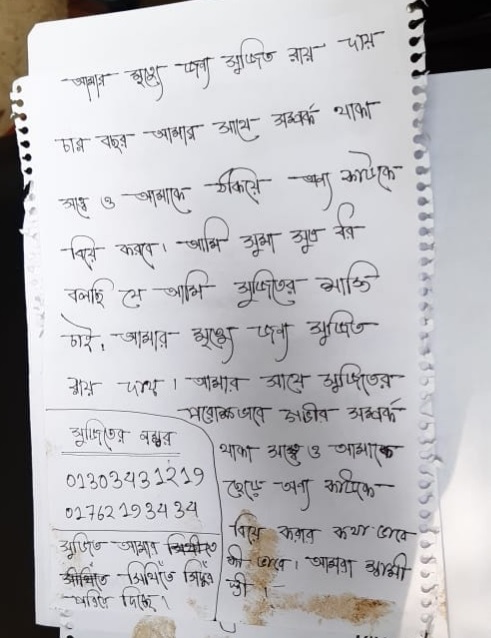 আমার মৃত্যু জন্য সুজিত রায় দায়
চার বছর আমার সাথে সম্পর্ক থাকা
সত্ত্বে ও আমাকে ঠকিয়ে অন্য কাউকে
বিয়ে করবে। আমি সুমা সূত্র ধর
বলছি যে আমি সুজিতের শাস্তি
চাই, আমার মৃত্যে জন্য সুজিত
রায় দায়। আমার সাথে সুজিতের
পরোক্ষ ভাবে গভীর সম্পর্ক
থাকা সত্ত্বে ও আমাকে
ছেড়ে অন্য কাউকে
বিয়ে করার কথা ভাবে
কী ভাবে। আমরা স্বামী
স্ত্রী।
সুজিতের নম্বর
01303431219
01762193434
সুজিত আমার
সিঁথিতে সিঁদুর
পরিয়ে দিছে।